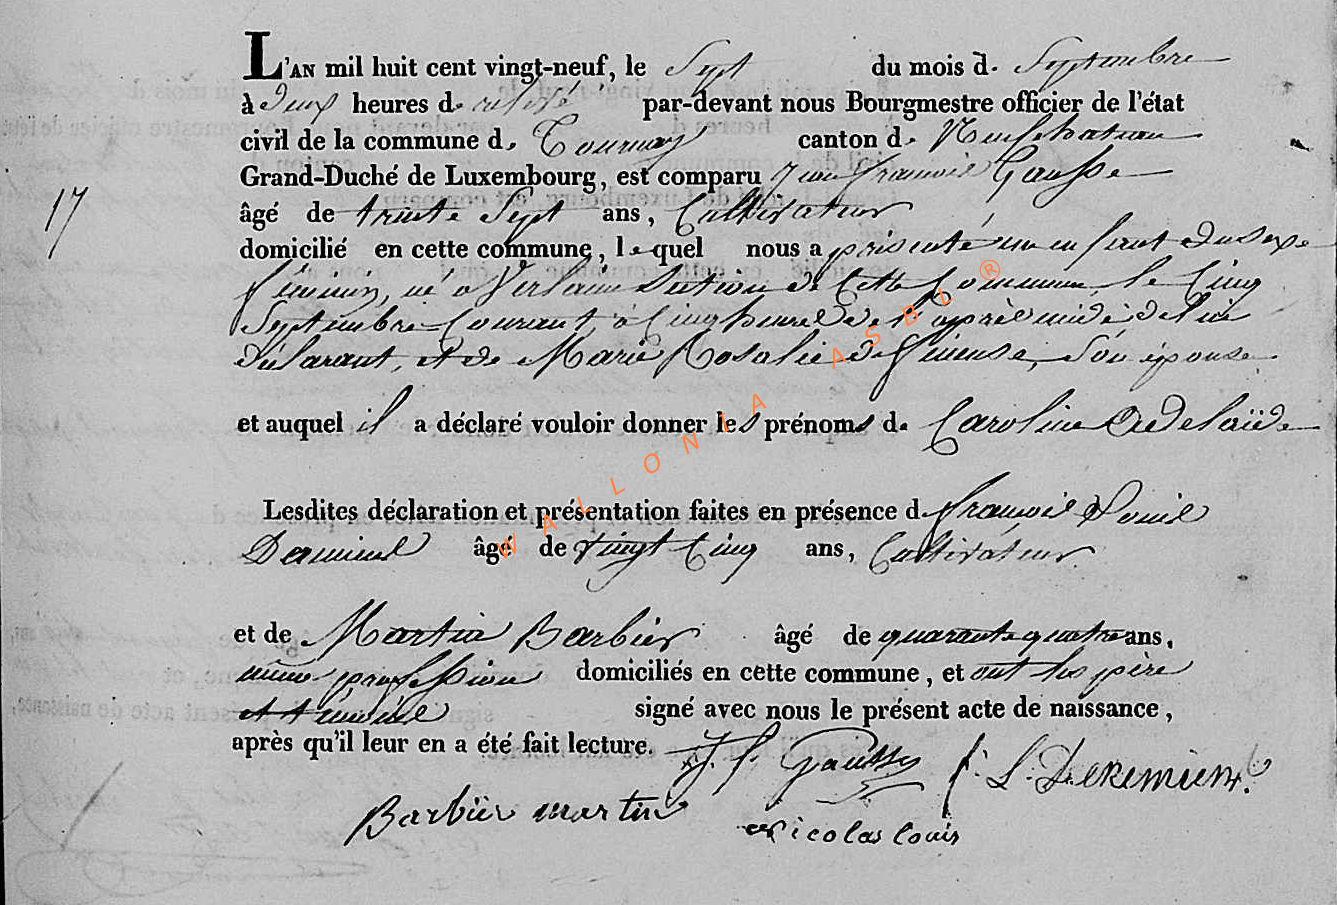 L'AN mil huit cent vingt-neuf, le Sept du mois d. Septembre
à deux heures d. relevé par-devant nous Bourgmestre officier de l'état
civil de la commune d. Tournay canton d. Neufchateau
Grand-Duché de Luxembourg, est comparu Jean françois Gausse
17
âgé de trente Sept ans, Cultivateur
domicilié en cette commune, lequel nous a présenté un enfant du Sexe
féminin, né à Verlaine Section de Cette Commune le Cinq
Septembre Courant, à Cinq heures de l'après midi de lui
déclarant, et de Marie Rosalie Son épouse
et auquel il a déclaré vouloir donner les prénoms d. Caroline Adelaïde
Lesdites déclaration et présentation faites en présence d. françois Louis
âgé de vingt Cinq ans, Cultivateur
et de Martin Barbier âgé de quarante quatre ans,
même profession domiciliés en cette commune, et ont les père
et témoins signé avec nous le présent acte de naissance,
après qu'il leur en a été fait lecture. J. f. Gausse f. L.
Barbier martin Nicolas Louis
WALLONIA ASBL ®